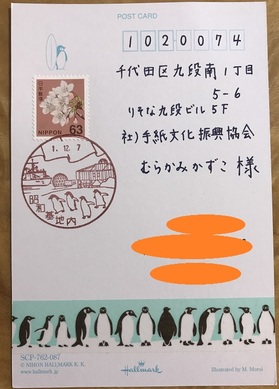 POST CARD
1020074
千代田区九段南1丁目
5-6
りそな九段ビル5F
社)手紙文化振興協会
むらかみかずこ 様
NIPPON
63
1.12.7
昭和
基地内
SCP-762-087
© NIHON HALLMARK K. K.
www.hallmark.jp
Hallmark
Illustrated by M. Morai